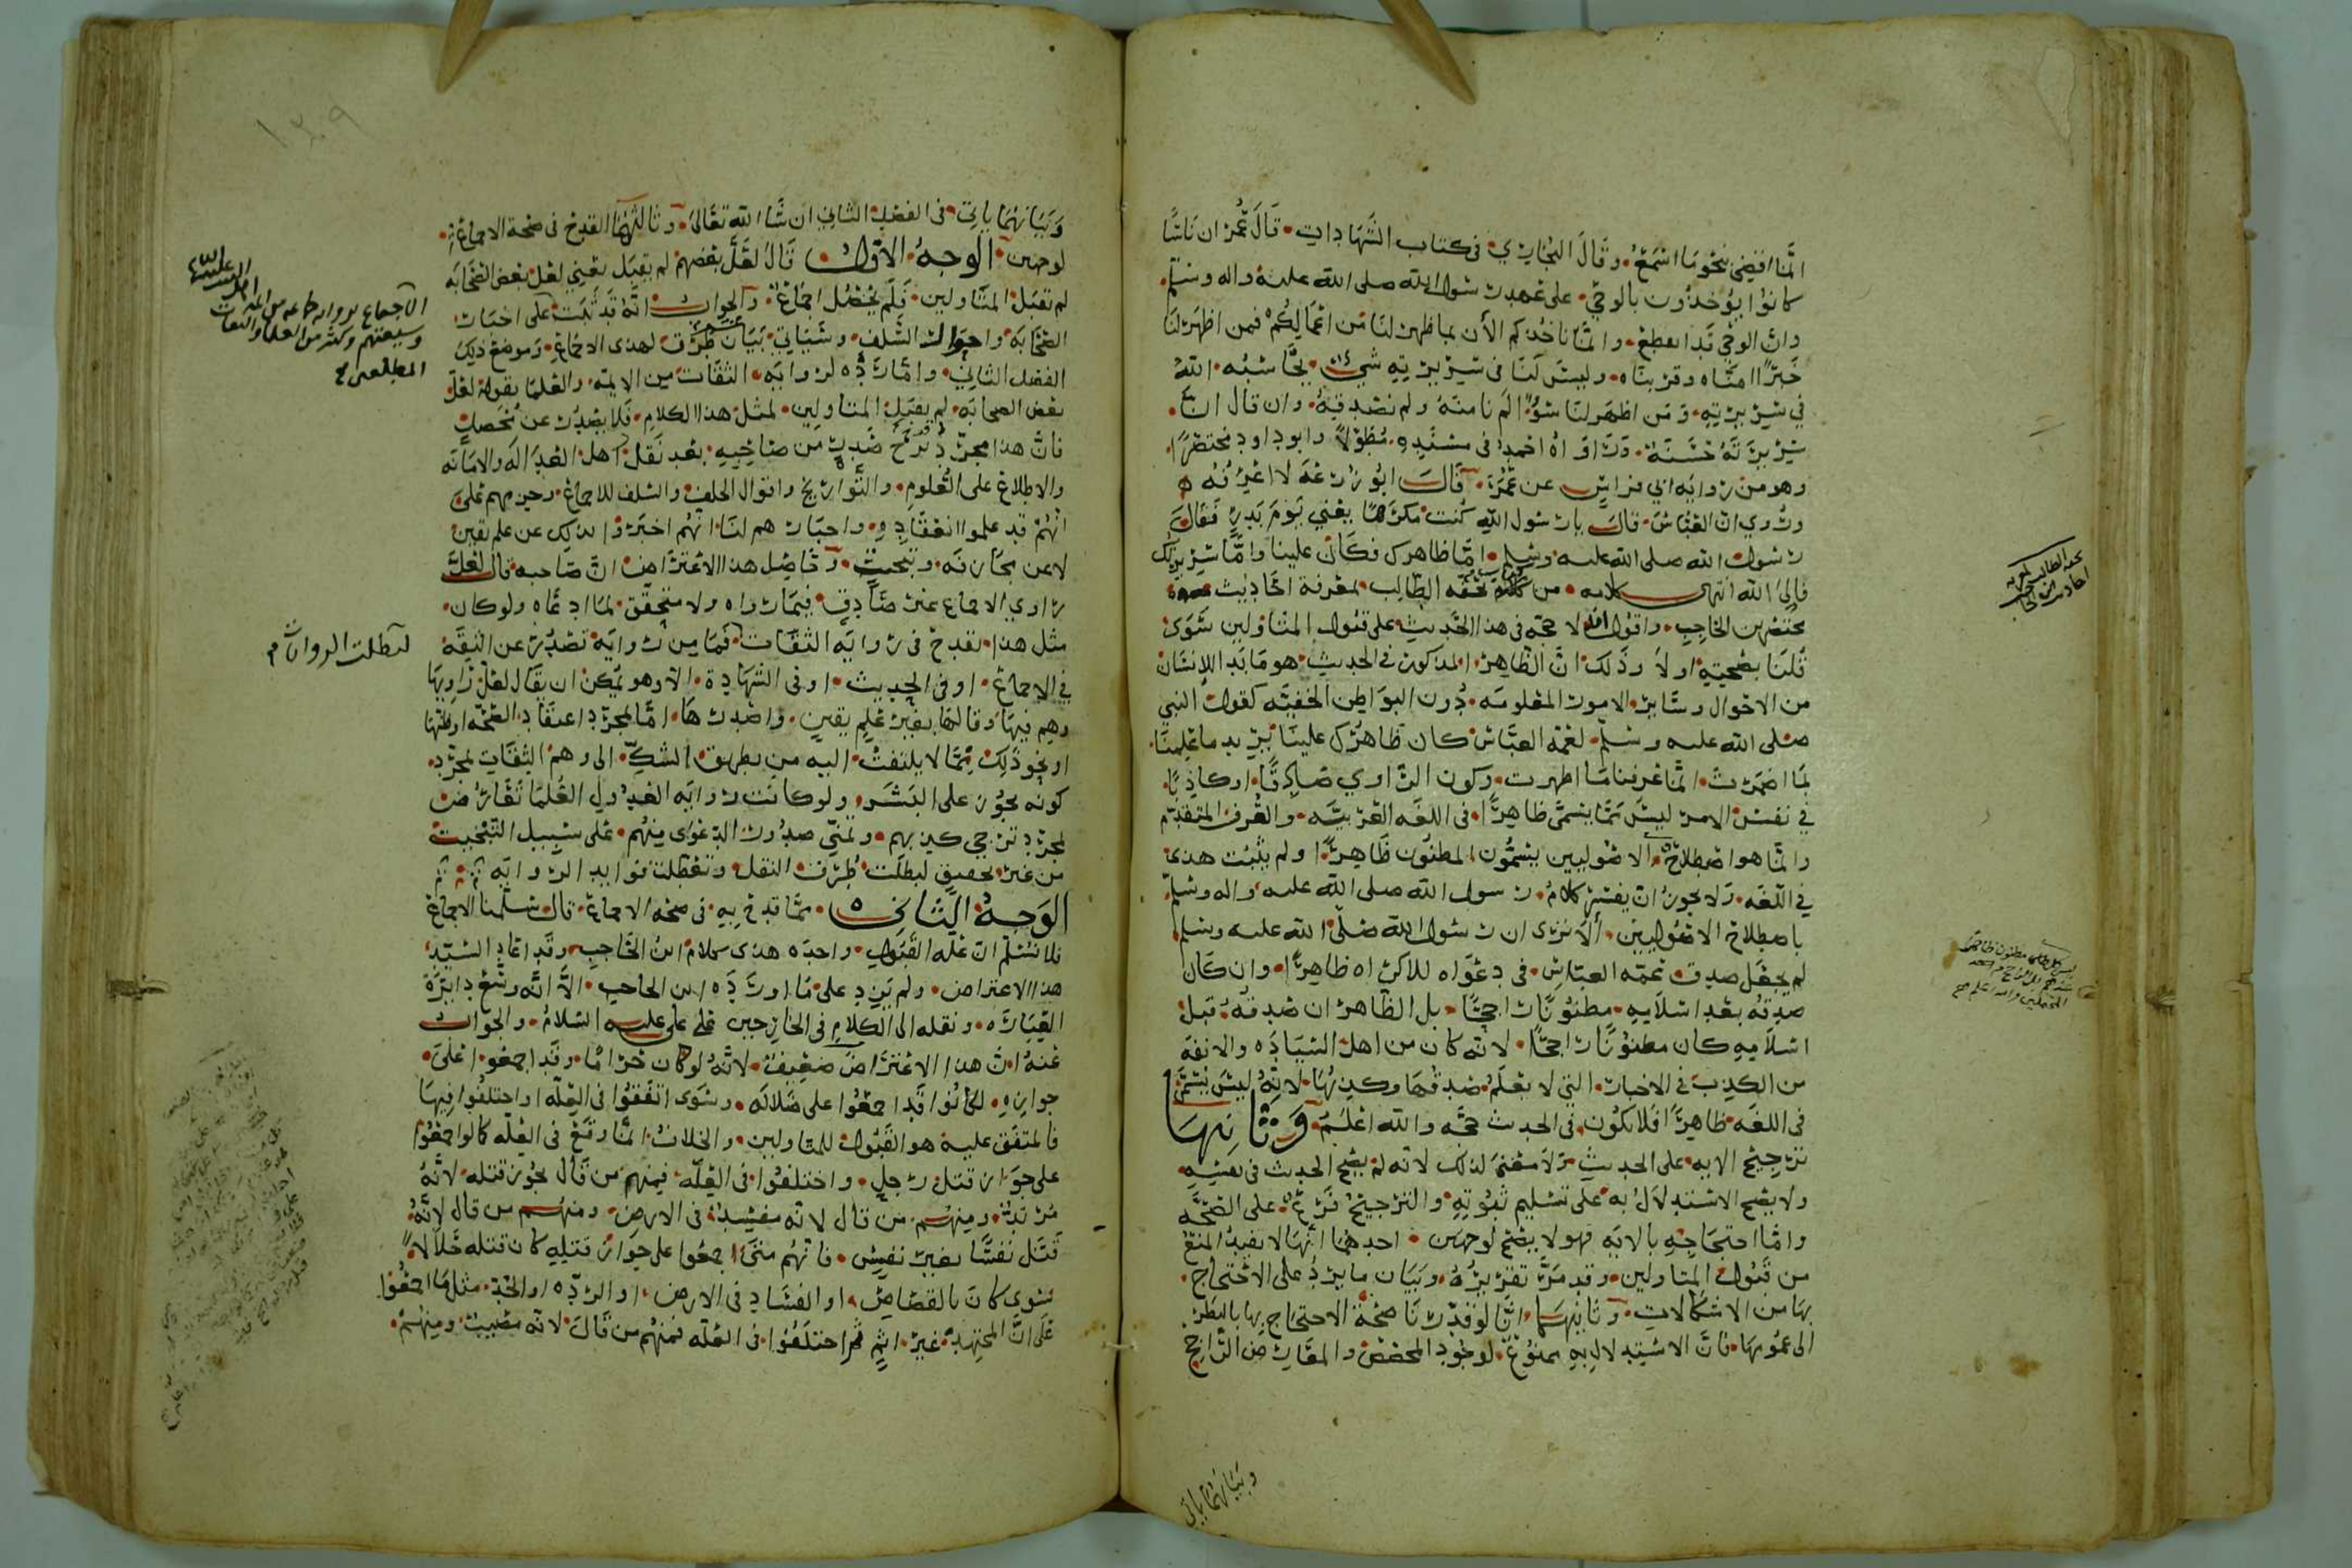 انما اقضي بنحو ما اسمع وقال البخاري في كتاب الشهادات قال عمر ان ناسا
كانوا يؤخذون بالوحي على عهد رسول الله صلى الله عليه واله وسلم
وان الوحي قد انقطع وانما ناخذكم الآن بما ظهر لنا من اعمالكم فمن اظهر لنا
خيرا امناه وقربناه وليس لنا في سريرته شي يحاسبه الله
في سريرته ومن اظهر لنا سوا لم نامنه ولم نصدقه وان قال ان
سريرته حسنة ورواه احمد في مسنده مطولا وابو داود مختصرا
وهو من رواية ابي فراس عن عمر قال ابو زرعة لا اعرفه
وروي ان العباس قال يا رسول الله كنت مكرها يعني يوم بدر فقال
رسول الله صلى الله عليه وسلم اما ظاهرك فكان علينا واما سريرتك
فالى الله انتهى كلامه من تحفة الطالب بمعرفة احاديث
مختصر ابن الحاجب واقول لا حجة في هذا الحديث على قبول المتاولين سوى
قلنا بصحته او لا وذلك ان الظاهر المذكور في الحديث هو ما بدا للانسان
من الاحوال وساير الامور المعلومة دون البواطن الخفية كقول النبي
صلى الله عليه وسلم لعمه العباس كان ظاهرك علينا يريد ما علمنا
بما اضمرت انما عرفنا ما اظهرت وكون الراوي صادقا او كاذبا
في نفس الامر ليس مما يسمى ظاهرا في اللغة العربية والعرف المتقدم
وانما هو اصطلاح الاصوليين يسمون المظنون ظاهرا ولم يثبت هذا
في اللغة ولا يجوز ان يفسر كلام رسول الله صلى الله عليه واله وسلم
باصطلاح الاصوليين ألا ترى ان رسول الله صلى الله عليه وسلم
لم يجعل صدق عمه العباس في دعواه للاكراه ظاهرا وان كان
صدقه بعد اسلامه مظنونا راجحا بل الظاهر ان صدقه قبل
اسلامه كان مظنونا راجحا لانه كان من اهل السيادة والانفة
من الكذب في الاخبار التي لا يعلم صدقها وكذبها لانه ليس يسمى
في اللغة ظاهرا فلا يكون في الحديث حجة والله اعلم وثانيها
ترجيح الاية على الحديث ولا معنى لذلك لانه لم يصح الحديث في نفسه
ولا يصح الاستدلال به على تسليم ثبوته والترجيح فرع على الصحة
واما احتجاجه بالاية فهو لا يصح لوجهين احدهما انها لا تفيد المنع
من قبول المتاولين وقد مر تقريره وبيان ما يرد على الاحتجاج
بها من الاشكالات وثانيهما انا لو قدرنا صحة الاحتجاج بها بالنظر
الى عمومها فان الاستدلال به ممنوع لوجود المخصص والمعارض الراجح
وبيانهما ياتي
وبيانهما ياتي في الفصل الثاني ان شا الله تعالى وثالثها القدح في صحة الاجماع
لوجهين الوجه الاول قال لعل بعضهم لم يقبل يعني لعل بعض الصحابة
لم تقبل المتاولين فلم يحصل اجماع والجواب انه قد ثبت على اخبار
الصحابة واحوال السلف وسياتي بيان طرق لهذا الاجماع وموضع ذلك
الفصل الثاني واما رده لرواية الثقات من الايمة والعلما بقوله لعل
بعض الصحابة لم يقبل المتاولين لمثل هذا الكلام فلا يصدر عن محصل
فان هذا مجرد ترجح صدر من صاحبه بعد نقل اهل العدالة والامانة
والاطلاع على العلوم والتواريخ واقوال الخلف والسلف للاجماع وجزمهم على
انهم قد علموا انعقاده واخبارهم لنا انهم اخبروا بذلك عن علم يقين
لا عن مجازفة وتبخيت وحاصل هذا الاعتراض ان صاحبه قال لعل
راوي الاجماع غير صادق فيما رواه ولا متحقق لما ادعاه ولو كان
مثل هذا يقدح في رواية الثقات فما من رواية تصدر عن الثقة
في الاجماع او في الحديث او في الشهادة الا وهو يمكن ان يقال لعل راويها
وهم فيها وقالها بغير علم يقين واصدرها اما لمجرد اعتقاد الصحة او ظنها
او نحو ذلك مما لا يلتفت اليه من تطريق الشك الى وهم الثقات لمجرد
كونه يجوز على البشر ولو كانت رواية العدول العلما تعارض
لمجرد ترجي كذبهم وتمني صدور الدعوى منهم على سبيل التبخيت
من غير تحقيق لبطلت طرق النقل وتعطلت فوايد الرواية
الوجه الثاني مما قدح به في صحة الاجماع قال سلمنا الاجماع
فلا نسلم ان علة القبول واحدة هذا كلام ابن الحاجب وقد اعاد السيد
هذا الاعتراض ولم يزد على ما اورده ابن الحاجب الا انه وسع دايرة
العبارة ونقله الى الكلام في الخارجين على علي عليه السلام والجواب
عنه ان هذا الاعتراض ضعيف لانه لو كان حراما وقد اجمعوا على
جوازه لكانوا قد اجمعوا على ضلالة وسوى اتفقوا في العلة او اختلفوا فيها
فالمتفق عليه هو القبول للمتاولين والخلاف انما وقع في العلة كما لو اجمعوا
على جواز قتل رجل واختلفوا في العلة فمنهم من قال يجوز قتله لانه
مرتد ومنهم من قال لانه مفسد في الارض ومنهم من قال لانه
قتل نفسا بغير نفس فانهم متى اجمعوا على جواز قتله كان قتله حلالا
سوى كان بالقصاص او الفساد في الارض او الردة او الحد مثل ما اجمعوا
على ان المجتهد غير اثم ثم اختلفوا في العلة فمنهم من قال لانه مصيب ومنهم
لبطلت الروايات